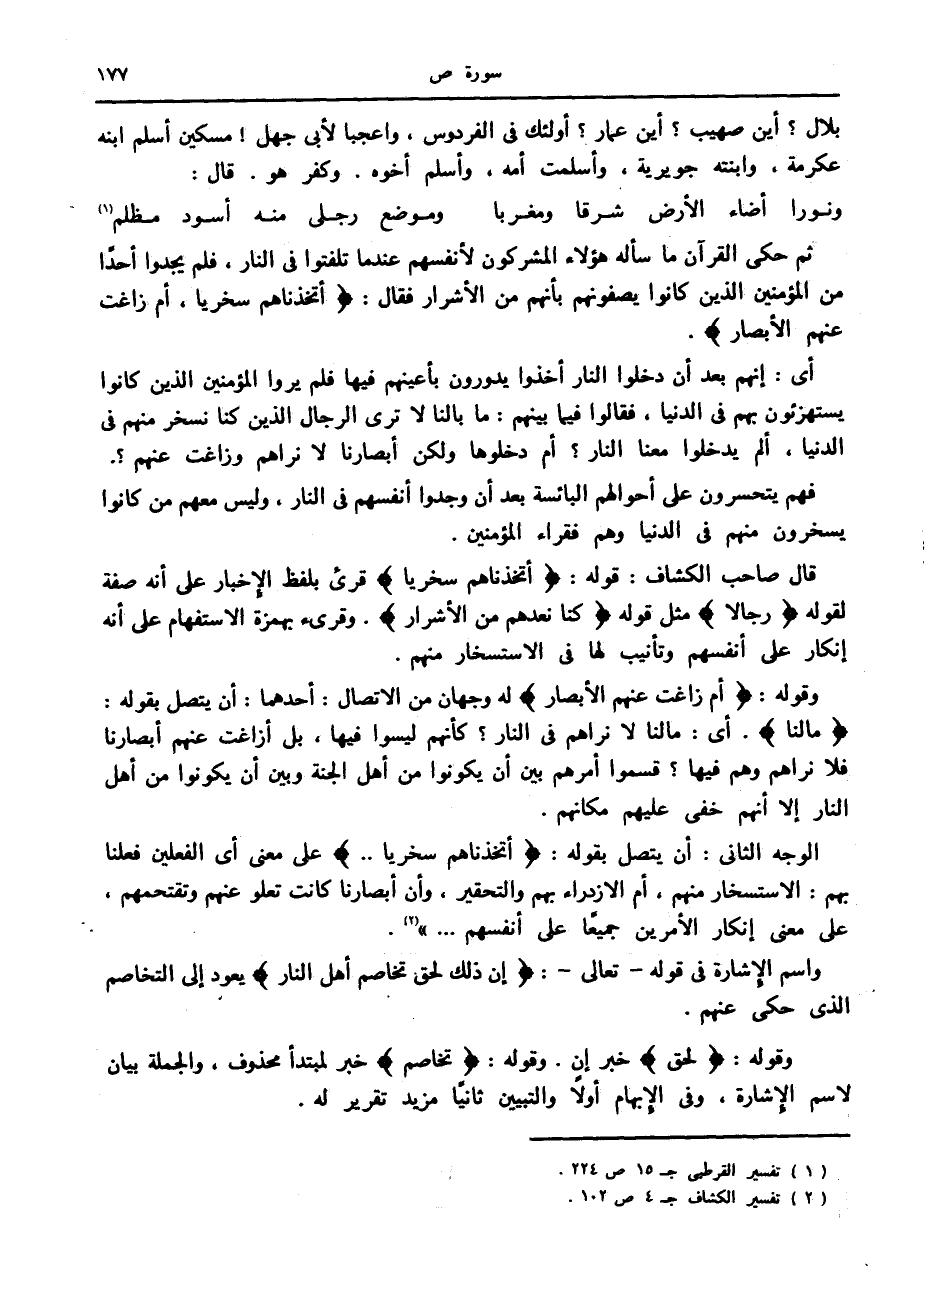 سورة ص
١٧٧
بلال ؟ أين صهيب ؟ أين عمار ؟ أولئك فى الفردوس ، واعجبا لأبى جهل ! مسكين أسلم ابنه
عكرمة ، وابنته جويرية ، وأسلمت أمه ، وأسلم أخوه . وكفر هو . قال :
ونورا أضاء الأرض شرقا ومغربا وموضع رجلى منه أسود مظلم(١)
ثم حكى القرآن ما سأله هؤلاء المشركون لأنفسهم عندما تلفتوا فى النار ، فلم يجدوا أحدًا
من المؤمنين الذين كانوا يصفونهم بأنهم من الأشرار فقال : ﴿ أتخذناهم سخريا ، أم زاغت
عنهم الأبصار ﴾ .
أى : إنهم بعد أن دخلوا النار أخذوا يدورون بأعينهم فيها فلم يروا المؤمنين الذين كانوا
يستهزئون بهم فى الدنيا ، فقالوا فيما بينهم : ما بالنا لا ترى الرجال الذين كنا نسخر منهم فى
الدنيا ، ألم يدخلوا معنا النار ؟ أم دخلوها ولكن أبصارنا لا نراهم وزاغت عنهم ؟.
فهم يتحسرون على أحوالهم البائسة بعد أن وجدوا أنفسهم فى النار ، وليس معهم من كانوا
يسخرون منهم فى الدنيا وهم فقراء المؤمنين .
قال صاحب الكشاف : قوله : ﴿ أتخذناهم سخريا ﴾ قرئ بلفظ الإخبار على أنه صفة
لقوله ﴿ رجالا ﴾ مثل قوله ﴿ كنا نعدهم من الأشرار ﴾ . وقرىء بهمزة الاستفهام على أنه
إنكار على أنفسهم وتأنيب لها فى الاستسخار منهم .
وقوله : ﴿ أم زاغت عنهم الأبصار ﴾ له وجهان من الاتصال : أحدهما : أن يتصل بقوله :
﴿ مالنا ﴾ . أى : مالنا لا نراهم فى النار ؟ كأنهم ليسوا فيها ، بل أزاغت عنهم أبصارنا
فلا نراهم وهم فيها ؟ قسموا أمرهم بين أن يكونوا من أهل الجنة وبين أن يكونوا من أهل
النار إلا أنهم خفى عليهم مكانهم .
الوجه الثانى : أن يتصل بقوله : ﴿ أتخذناهم سخريا .. ﴾ على معنى أى الفعلين فعلنا
بهم : الاستسخار منهم ، أم الازدراء بهم والتحقير ، وأن أبصارنا كانت تعلو عنهم وتقتحمهم ،
على معنى إنكار الأمرين جميعًا على أنفسهم ... »(٢) .
واسم الإشارة فى قوله – تعالى – : ﴿ إن ذلك لحق تخاصم أهل النار ﴾ يعود إلى التخاصم
الذى حكى عنهم .
وقوله : ﴿ لحق ﴾ خبر إن . وقوله : ﴿ تخاصم ﴾ خبر لمبتدأ محذوف ، والجملة بيان
لاسم الإشارة ، وفى الإبهام أولًا والتبيين ثانيًا مزيد تقرير له .
( ١ ) تفسير القرطبى جـ ١٥ ص ٢٢٤ .
( ٢ ) تفسير الكشاف جـ ٤ ص ١٠٢ .